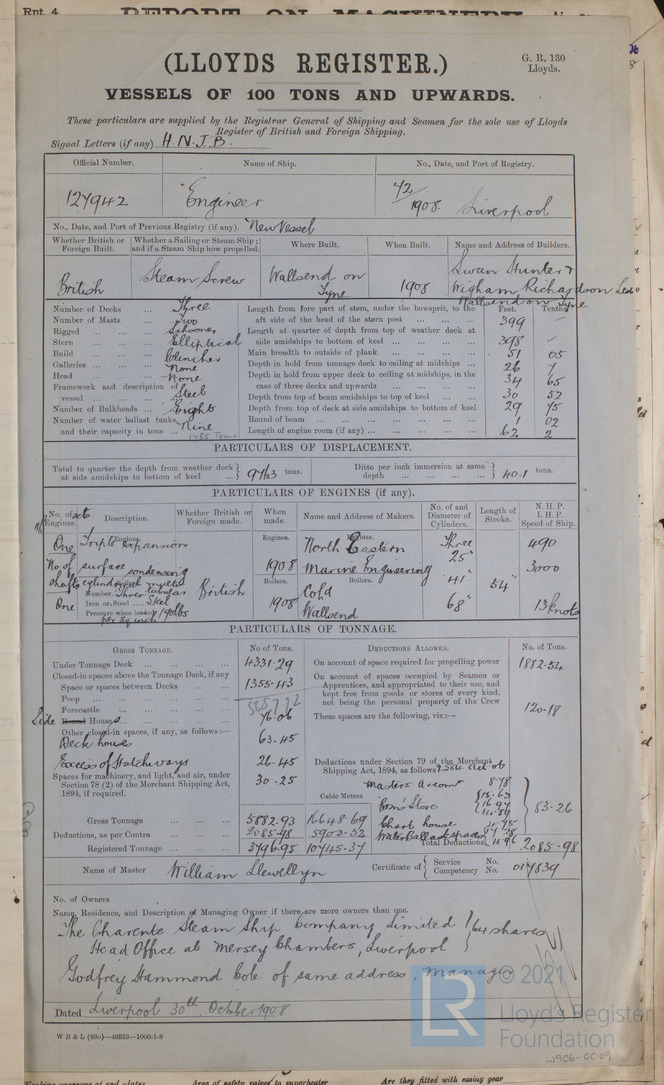 Rpt. 4
REPORT ON MACHINERY
(LLOYDS REGISTER.)
G. R. 130
Lloyds.
VESSELS OF 100 TONS AND UPWARDS.
These particulars are supplied by the Registrar General of Shipping and Seamen for the sole use of Lloyds
Register of British and Foreign Shipping.
Signal Letters (if any) H.N.J.B.
Official Number. Name of Ship. No., Date, and Port of Registry.
127942 "Engineer 72/1908. Liverpool
No., Date, and Port of Previous Registry (if any). New Vessel
Whether British or Foreign Built. Whether a Sailing or Steam Ship; and if a Steam Ship how propelled. Where Built. When Built. Name and Address of Builders.
British Steam Screw Wallsend on Tyne 1908 Swan Hunter & Wigham Richardson Ltd Wallsend on Tyne
Number of Decks ... Three
Number of Masts ... Two
Rigged ... Schooner
Stern ... Elliptical
Build ... Clencher
Galleries ... None
Head ... None
Framework and description of vessel ... Steel
Number of Bulkheads ... Eight
Number of water ballast tanks, and their capacity in tons ... Nine
1485 Tons
Feet. Tenths.
Length from fore part of stem, under the bowsprit, to the aft side of the head of the stern post ... 399 –
Length at quarter of depth from top of weather deck at side amidships to bottom of keel ... 398 –
Main breadth to outside of plank ... 51 05
Depth in hold from tonnage deck to ceiling at midships ... 26 7
Depth in hold from upper deck to ceiling at midships, in the case of three decks and upwards ... 34 65
Depth from top of beam amidships to top of keel ... 30 52
Depth from top of deck at side amidships to bottom of keel 29 75
Round of beam ... 1 02
Length of engine room (if any) ... 62 2
PARTICULARS OF DISPLACEMENT.
Total to quarter the depth from weather deck at side amidships to bottom of keel ... 9763 tons.
Ditto per inch immersion at same depth ... 40.1 tons.
PARTICULARS OF ENGINES (if any).
No. of sets of Engines. Description. Whether British or Foreign made. When made. Name and Address of Makers. No. of and Diameter of Cylinders. Length of Stroke. N.H.P. I.H.P. Speed of Ship.
Engines. Engines. Engines.
One Triple Expansion surface condensing
1908 North Eastern Marine Engineering
Three 25" 41" 68" 54" 490 3000 13 knots
No of shafts One
Boilers. Boilers.
cylindrical multitubular
British
Number Three
Iron or Steel Steel
Pressure when loaded 190 lbs per sq inch
1908 Cold Wallsend
PARTICULARS OF TONNAGE.
Gross Tonnage. No of Tons. Deductions Allowed. No. of Tons.
Under Tonnage Deck ... 4331.29
Closed-in spaces above the Tonnage Deck, if any
Space or spaces between Decks ... 1355.43
Poop ...
Forecastle ...
Side Round Houses ... 76.06
Other closed-in spaces, if any, as follows:—
Deck house 63.45
Excess of Hatchways 26.45
Spaces for machinery, and light, and air, under Section 78 (2) of the Merchant Shipping Act, 1894, if required. 30.25
Cubic Metres
Gross Tonnage 5882.93 16648.69
Deductions, as per Contra ... 2085.98 5903.32
Registered Tonnage ... 3796.95 10745.37
On account of space required for propelling power 1882.54
On account of spaces occupied by Seamen or Apprentices, and appropriated to their use, and kept free from goods or stores of every kind, not being the personal property of the Crew 120.18
These spaces are the following, viz:—
Deductions under Section 79 of the Merchant Shipping Act, 1894, as follows
Masters Accomn 8.78
Bosn's Store
Chart house
Water Ballast spaces
83.26
Total Deductions 2085.98
Name of Master William Llewellyn
Certificate of { Service No. Competency No. 017839
No. of Owners
Name, Residence, and Description of Managing Owner if there are more owners than one.
The Charente Steam Ship Company Limited } 64 shares
Head Office at Mersey Chambers, Liverpool
Godfrey Hammond Cole of same address, Manager
Dated Liverpool 30th October 1908
W B & L (83o)—40923—1000-1-8
LR
© 2021
Lloyd's Register
Foundation
W906-0009
Working pressure of end plates Area of safety valves to superheater Are they fitted with easing gear